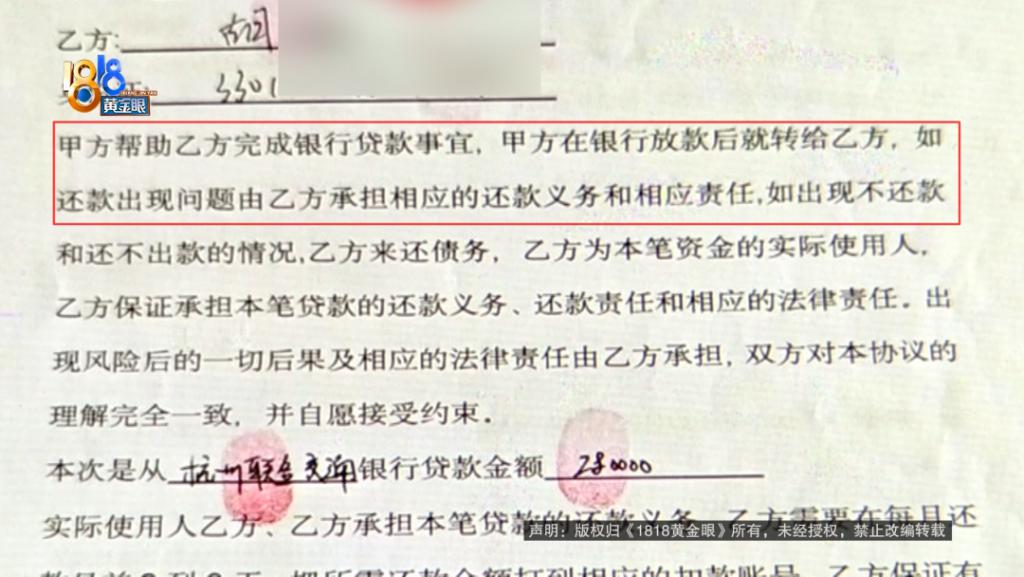 乙方:
3301
1818
黄金眼
甲方帮助乙方完成银行贷款事宜，甲方在银行放款后就转给乙方，如
还款出现问题由乙方承担相应的还款义务和相应责任,如出现不还款
和还不出款的情况,乙方来还债务，乙方为本笔资金的实际使用人，
乙方保证承担本笔贷款的还款义务、还款责任和相应的法律责任。出
现风险后的一切后果及相应的法律责任由乙方承担，双方对本协议的
理解完全一致，并自愿接受约束。
本次是从 杭州联合 银行贷款金额 280000
实际使用人乙方、乙方承担本笔贷款的还款义务，乙方需要在每月还
声明：版权归《1818黄金眼》所有，未经授权，禁止改编转载
把所需还款金额打到相应的扣款账号，乙方保证有